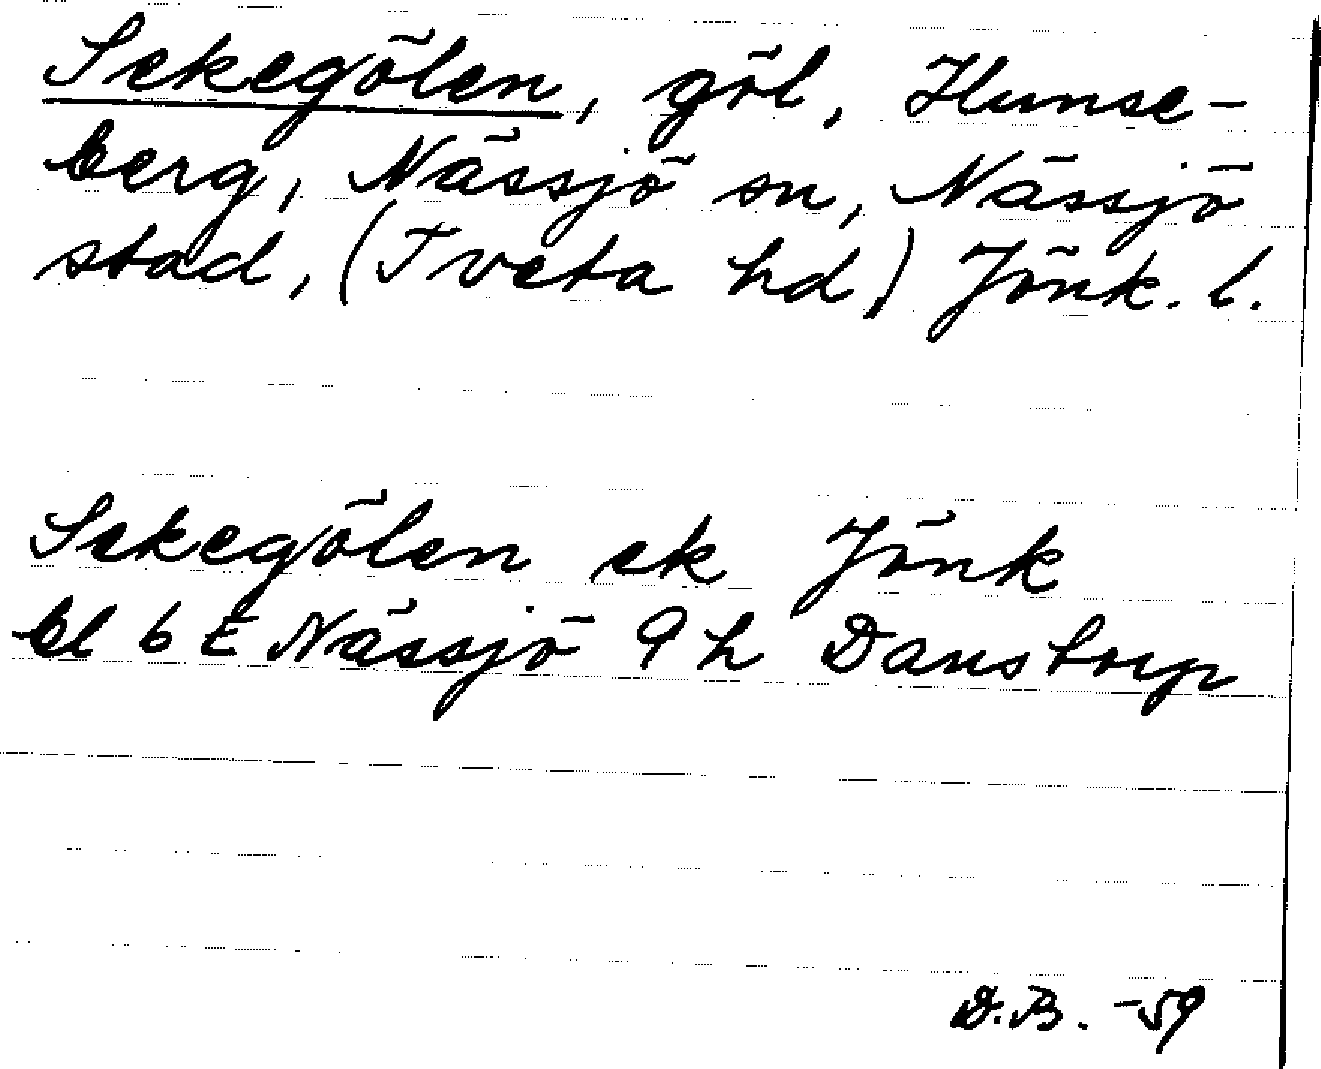 Sekegölen, göl, Hunse-
berg, Nässjö sn, Nässjö
stad, (Tveta hd) Jönk. l.
Sekegölen ek Jönk
bl 6 E Nässjö 9 h Danstorp
D.B. -59